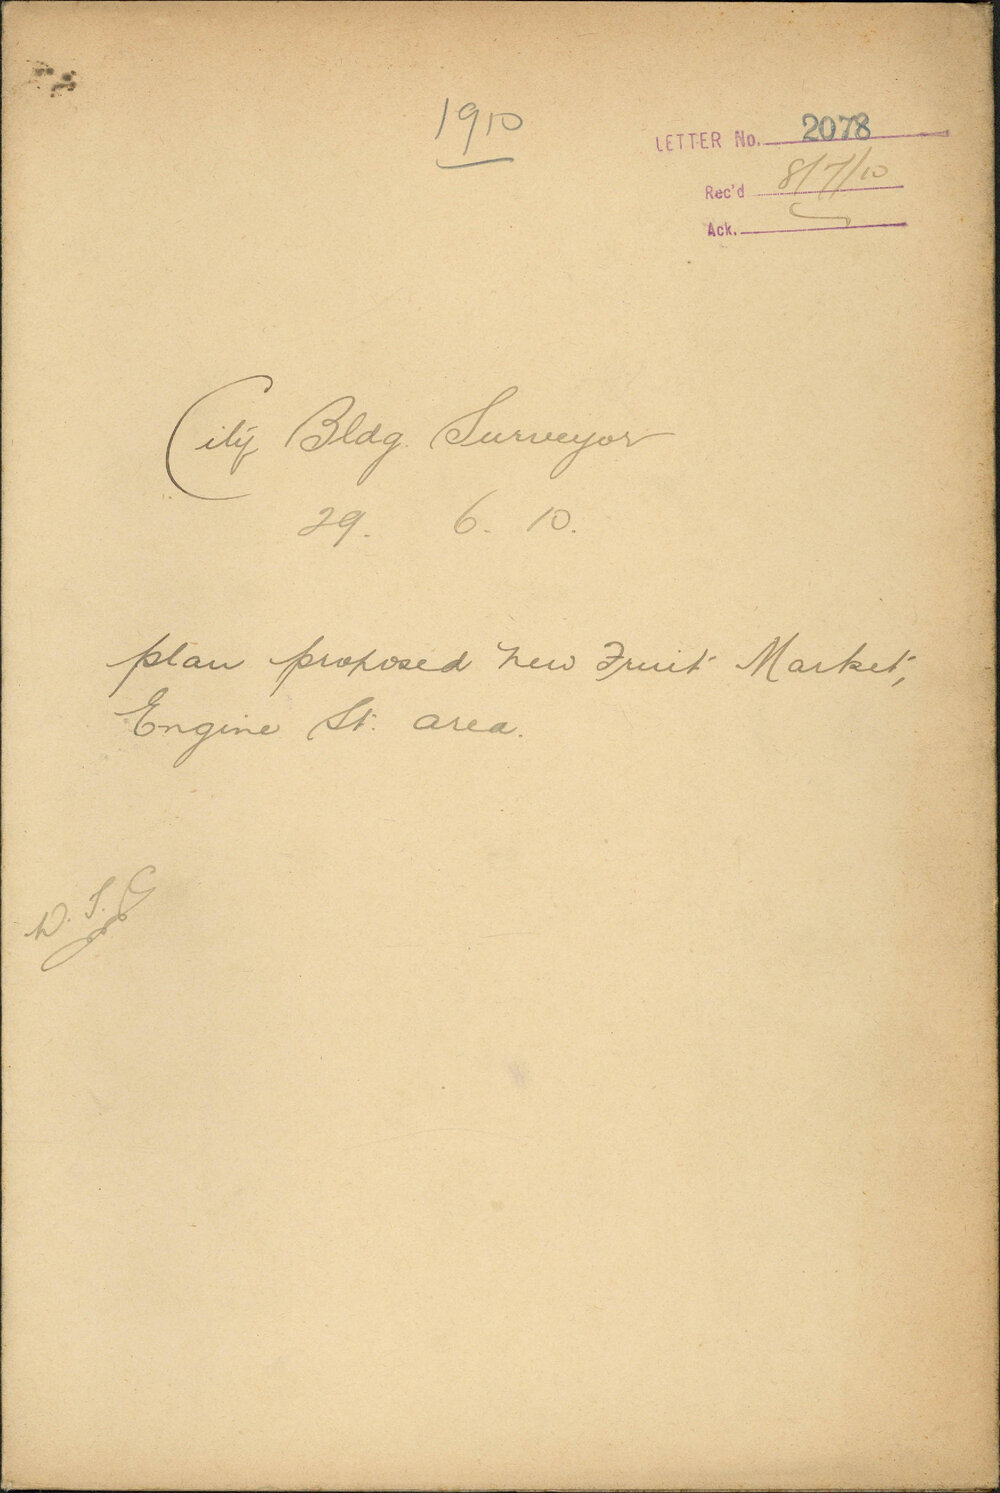 1910
LETTER No. 2078
Rec'd 8/7/10
Ack.
City Bldg. Surveyor
29. 6. 10.
plan proposed new Fruit Market,
Engine St. area.